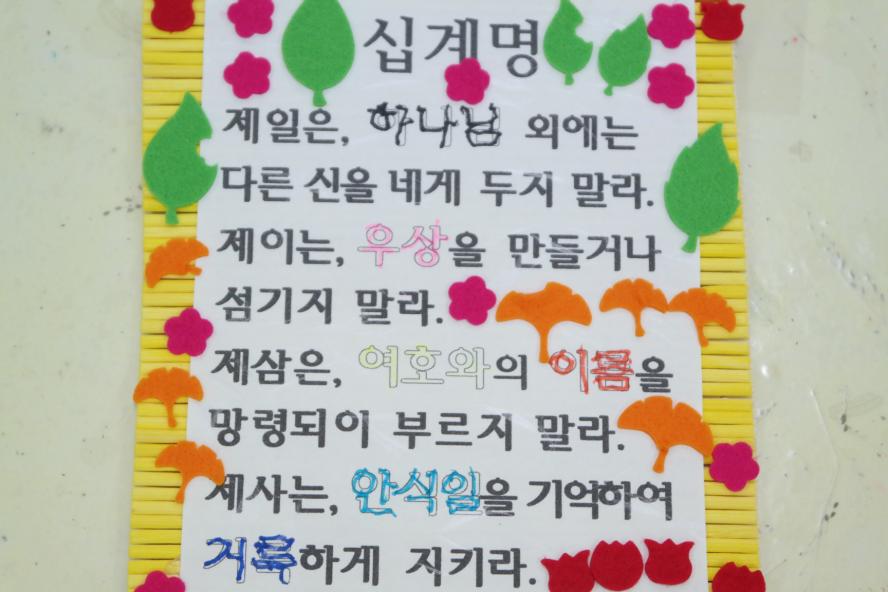 십계명
제일은, 하나님 외에는
다른 신을 네게 두지 말라.
제이는, 우상을 만들거나
섬기지 말라.
제삼은, 여호와의 이름을
망령되이 부르지 말라.
제사는, 안식일을 기억하여
거룩하게 지키라.